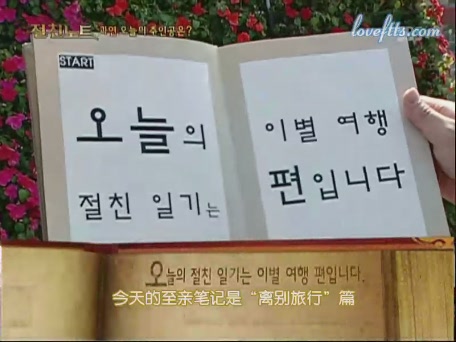 loveftts.com
절친노트 과연 오늘의 주인공은?
START
오늘의
절친 일기는
이별 여행
편입니다
오늘의 절친 일기는 이별 여행 편입니다.
今天的至亲笔记是“离别旅行”篇